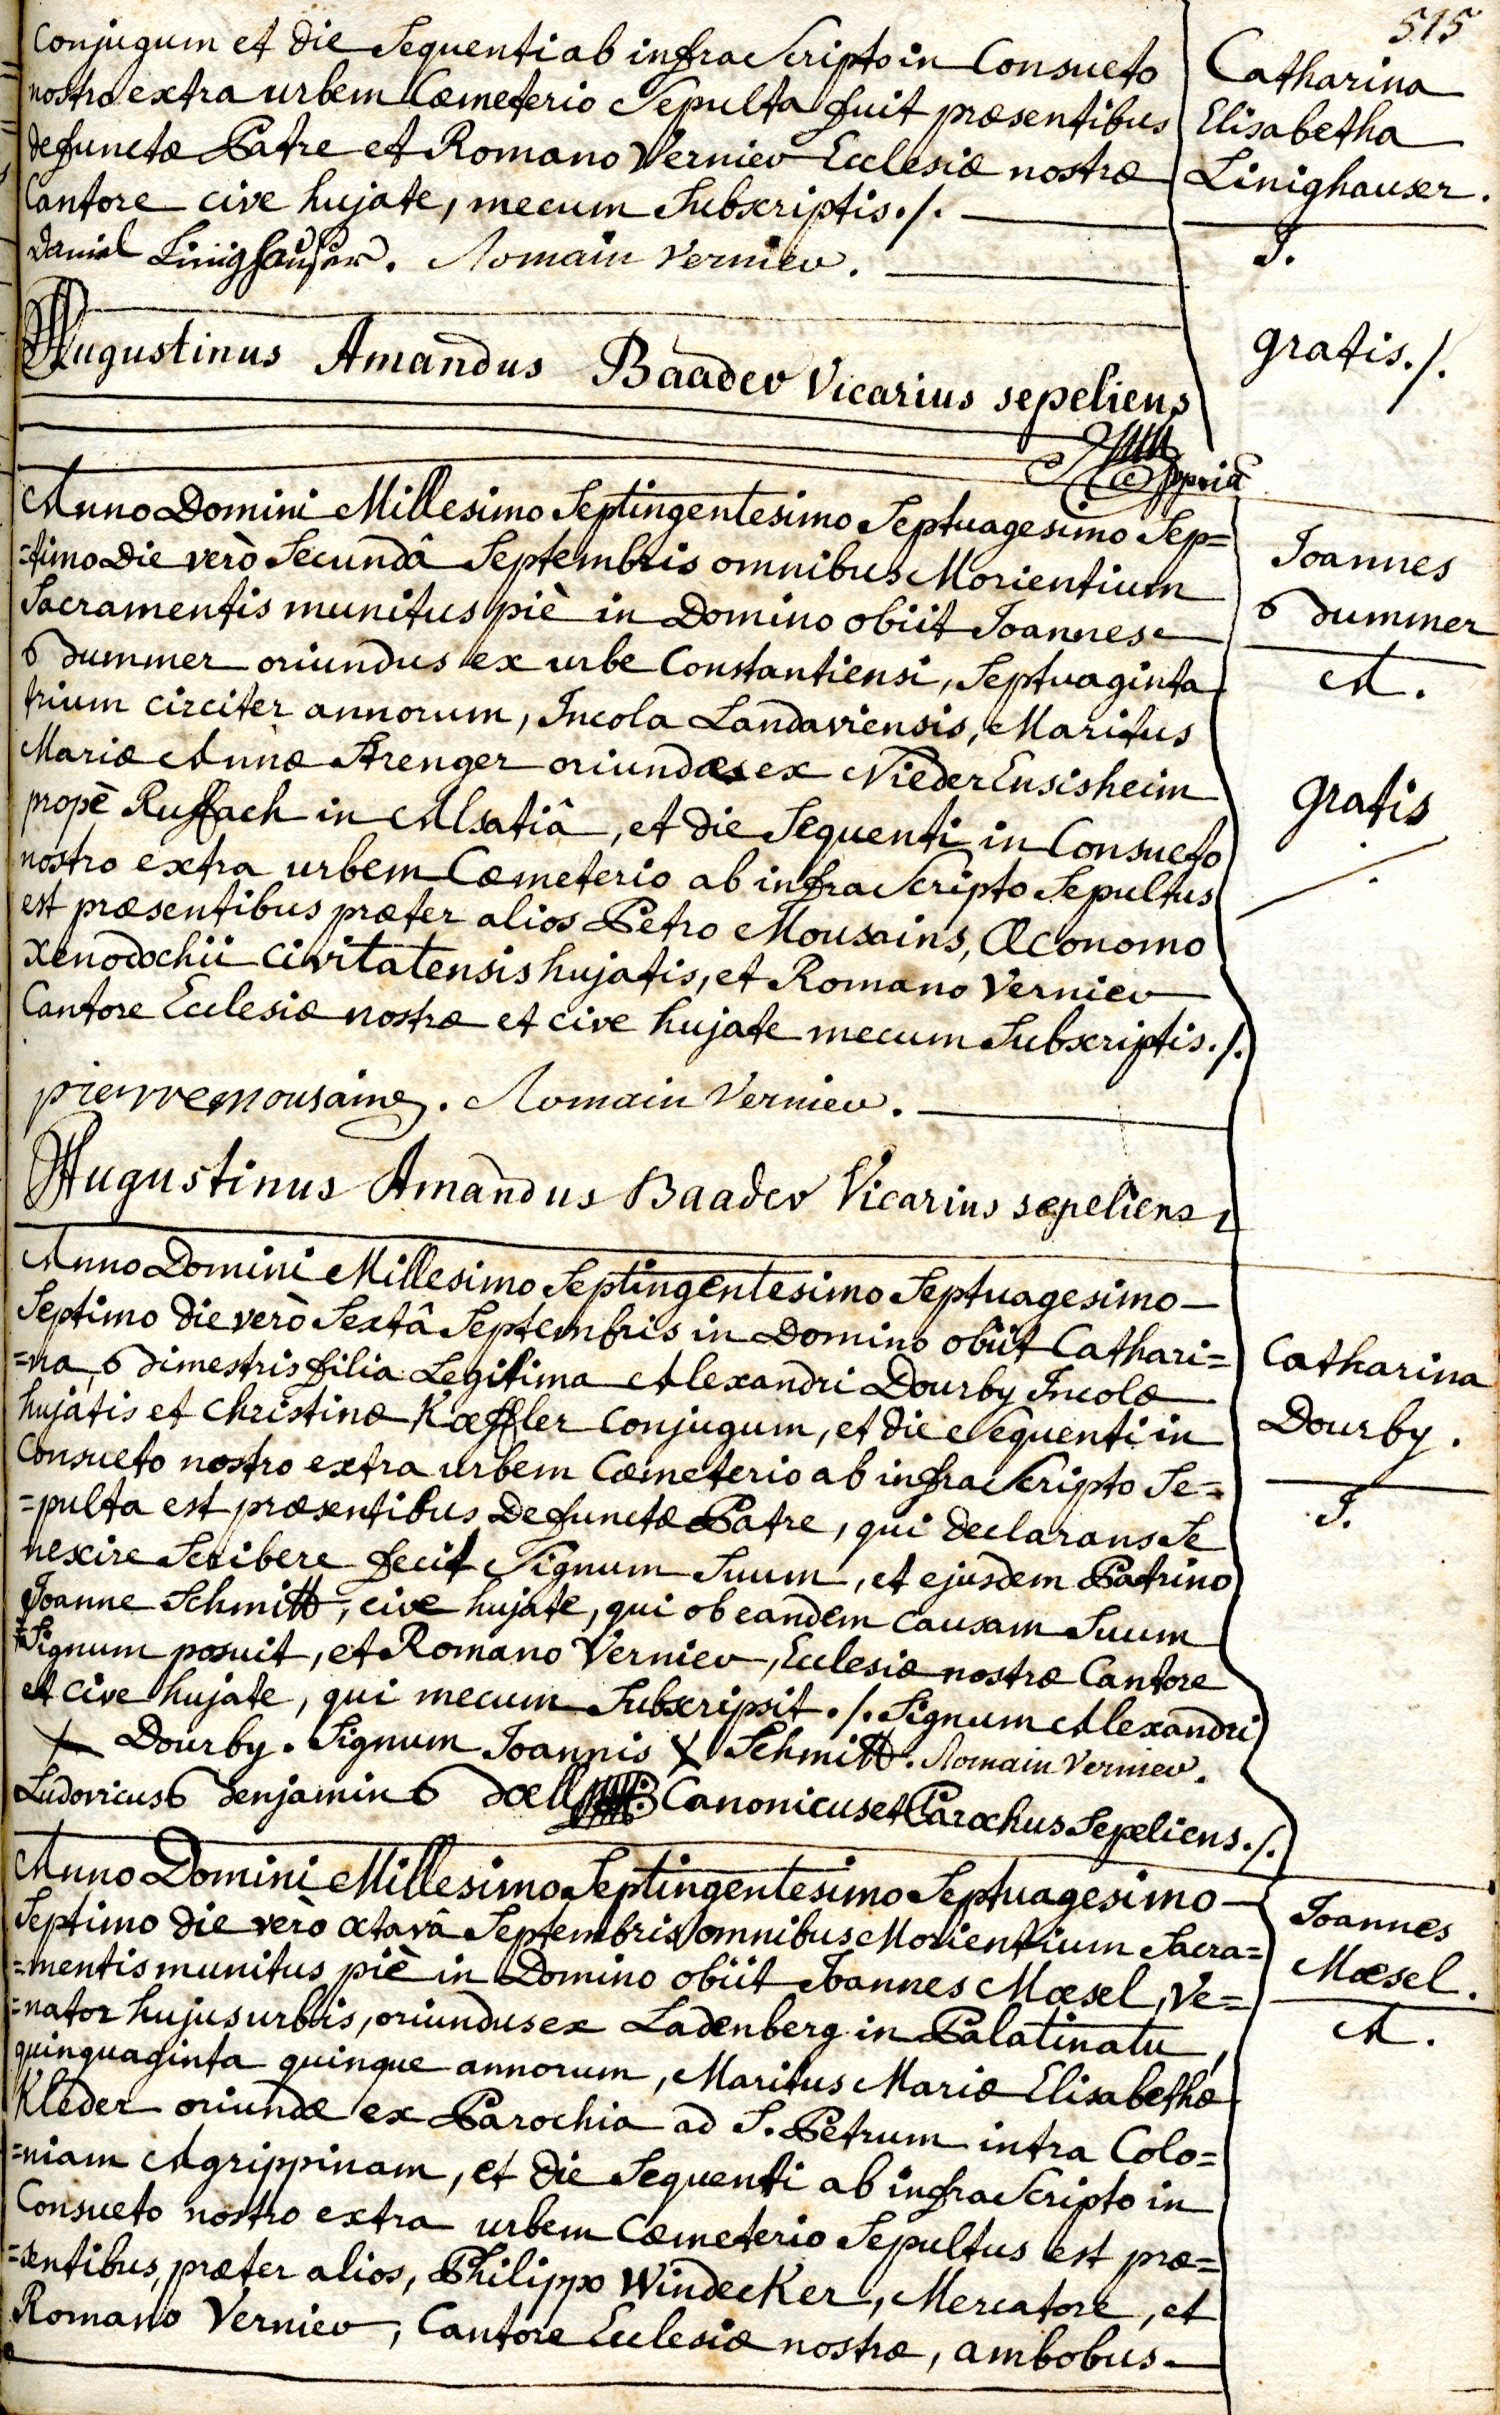 515
conjugum et die Sequenti ab infra Scripto in Consueto
nostro extra urbem Cœmeterio Sepulta fuit præsentibus
defunctæ Patre et Romano Vernier Ecclesiæ nostræ
Cantore cive hujate, mecum Subscriptis./.
Daniel Linighauser. Romain Vernier.
Catharina
Elisabetha
Linighauser.
J.
gratis./.
Augustinus Amandus Baader Vicarius sepeliens
ppria
Anno Domini Millesimo Septingentesimo Septuagesimo Sep=
=timo die verò Secundâ Septembris omnibus Morientium
Sacramentis munitus piè in Domino obiit Joannes
Bummer oriundus ex urbe Constantiensi, Septuaginta
trium circiter annorum, Incola Landaviensis, Maritus
Mariæ Annæ Strenger oriundæ ex NiederEnsisheim
propè Ruffach in Alsatiâ, et die Sequenti in Consueto
nostro extra urbem Cœmeterio ab infra Scripto Sepultus
est præsentibus præter alios Petro Mousains, Œconomo
Xenodochii Civitatensis hujatis, et Romano Vernier
Cantore Ecclesiæ nostræ et cive hujate mecum Subscriptis./.
pierre mousaing. Romain Vernier.
Joannes
Bummer
A.
gratis
./.
Augustinus Amandus Baader Vicarius sepeliens
Anno Domini Millesimo Septingentesimo Septuagesimo
Septimo die verò Sextâ Septembris in Domino obiit Cathari=
=na, Bimestris filia Legitima Alexandri Dourby Incolæ
hujatis et Christinæ Kœffler conjugum, et die Sequenti in
Consueto nostro extra urbem Cœmeterio ab infra Scripto Se=
=pulta est præsentibus Defunctæ Patre, qui declarans Se
nescire Scribere fecit Signum Suum, et ejusdem Patrino
Joanne Schmitt, cive hujate, qui ob eandem causam Suum
Signum posuit, et Romano Vernier, Ecclesiæ nostræ Cantore
et cive hujate, qui mecum Subscripsit./. Signum Alexandri
+ Dourby. Signum Joannis X Schmitt. Romain Vernier.
Ludovicus Benjamin Bœll Canonicus et Parochus Sepeliens./.
Catharina
Dourby.
J.
Anno Domini Millesimo Septingentesimo Septuagesimo
Septimo die verò octavâ Septembris omnibus Morientium Sacra=
=mentis munitus piè in Domino obiit Joannes Mæsel, Ve=
=nator hujus urbis, oriundus ex Ladenberg in Palatinatu,
quinquaginta quinque annorum, Maritus Mariæ Elisabethæ
Kleder oriundæ ex Parochia ad S. Petrum intra Colo=
=niam Agrippinam, et die Sequenti ab infra Scripto in
Consueto nostro extra urbem Cœmeterio Sepultus est præ=
=sentibus, præter alios, Philippo Windecker, Mercatore, et
Romano Vernier, Cantore Ecclesiæ nostræ, ambobus
Joannes
Mæsel.
A.